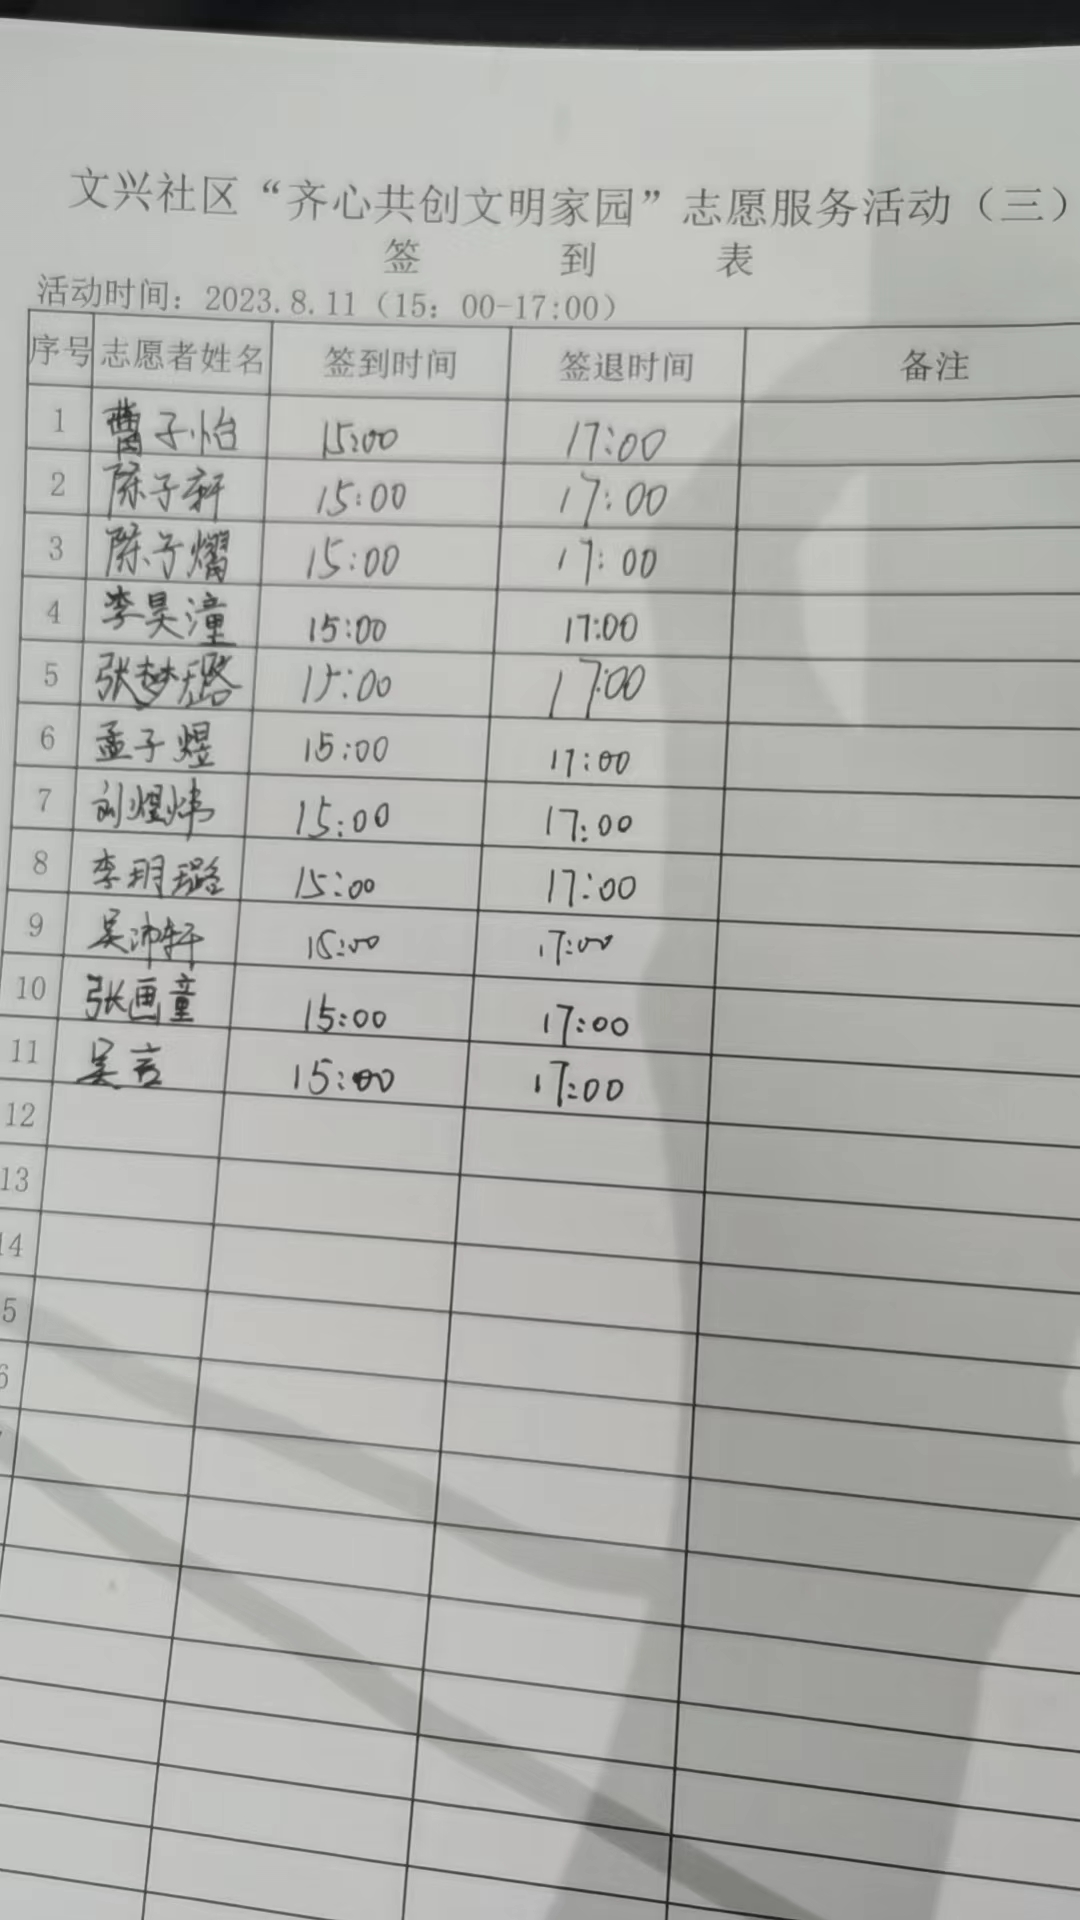 文兴社区“齐心共创文明家园”志愿服务活动（三）
签 到 表
活动时间：2023.8.11（15：00-17:00）
序号 志愿者姓名 签到时间 签退时间 备注
1 曹子怡 15:00 17:00
2 陈子轩 15:00 17:00
3 陈子熠 15:00 17:00
4 李昊潼 15:00 17:00
5 张梦璐 15:00 17:00
6 孟子煜 15:00 17:00
7 刘煜炜 15:00 17:00
8 李玥璐 15:00 17:00
9 吴沛轩 15:00 17:00
10 张画童 15:00 17:00
11 吴言 15:00 17:00
12
13
14
5
6